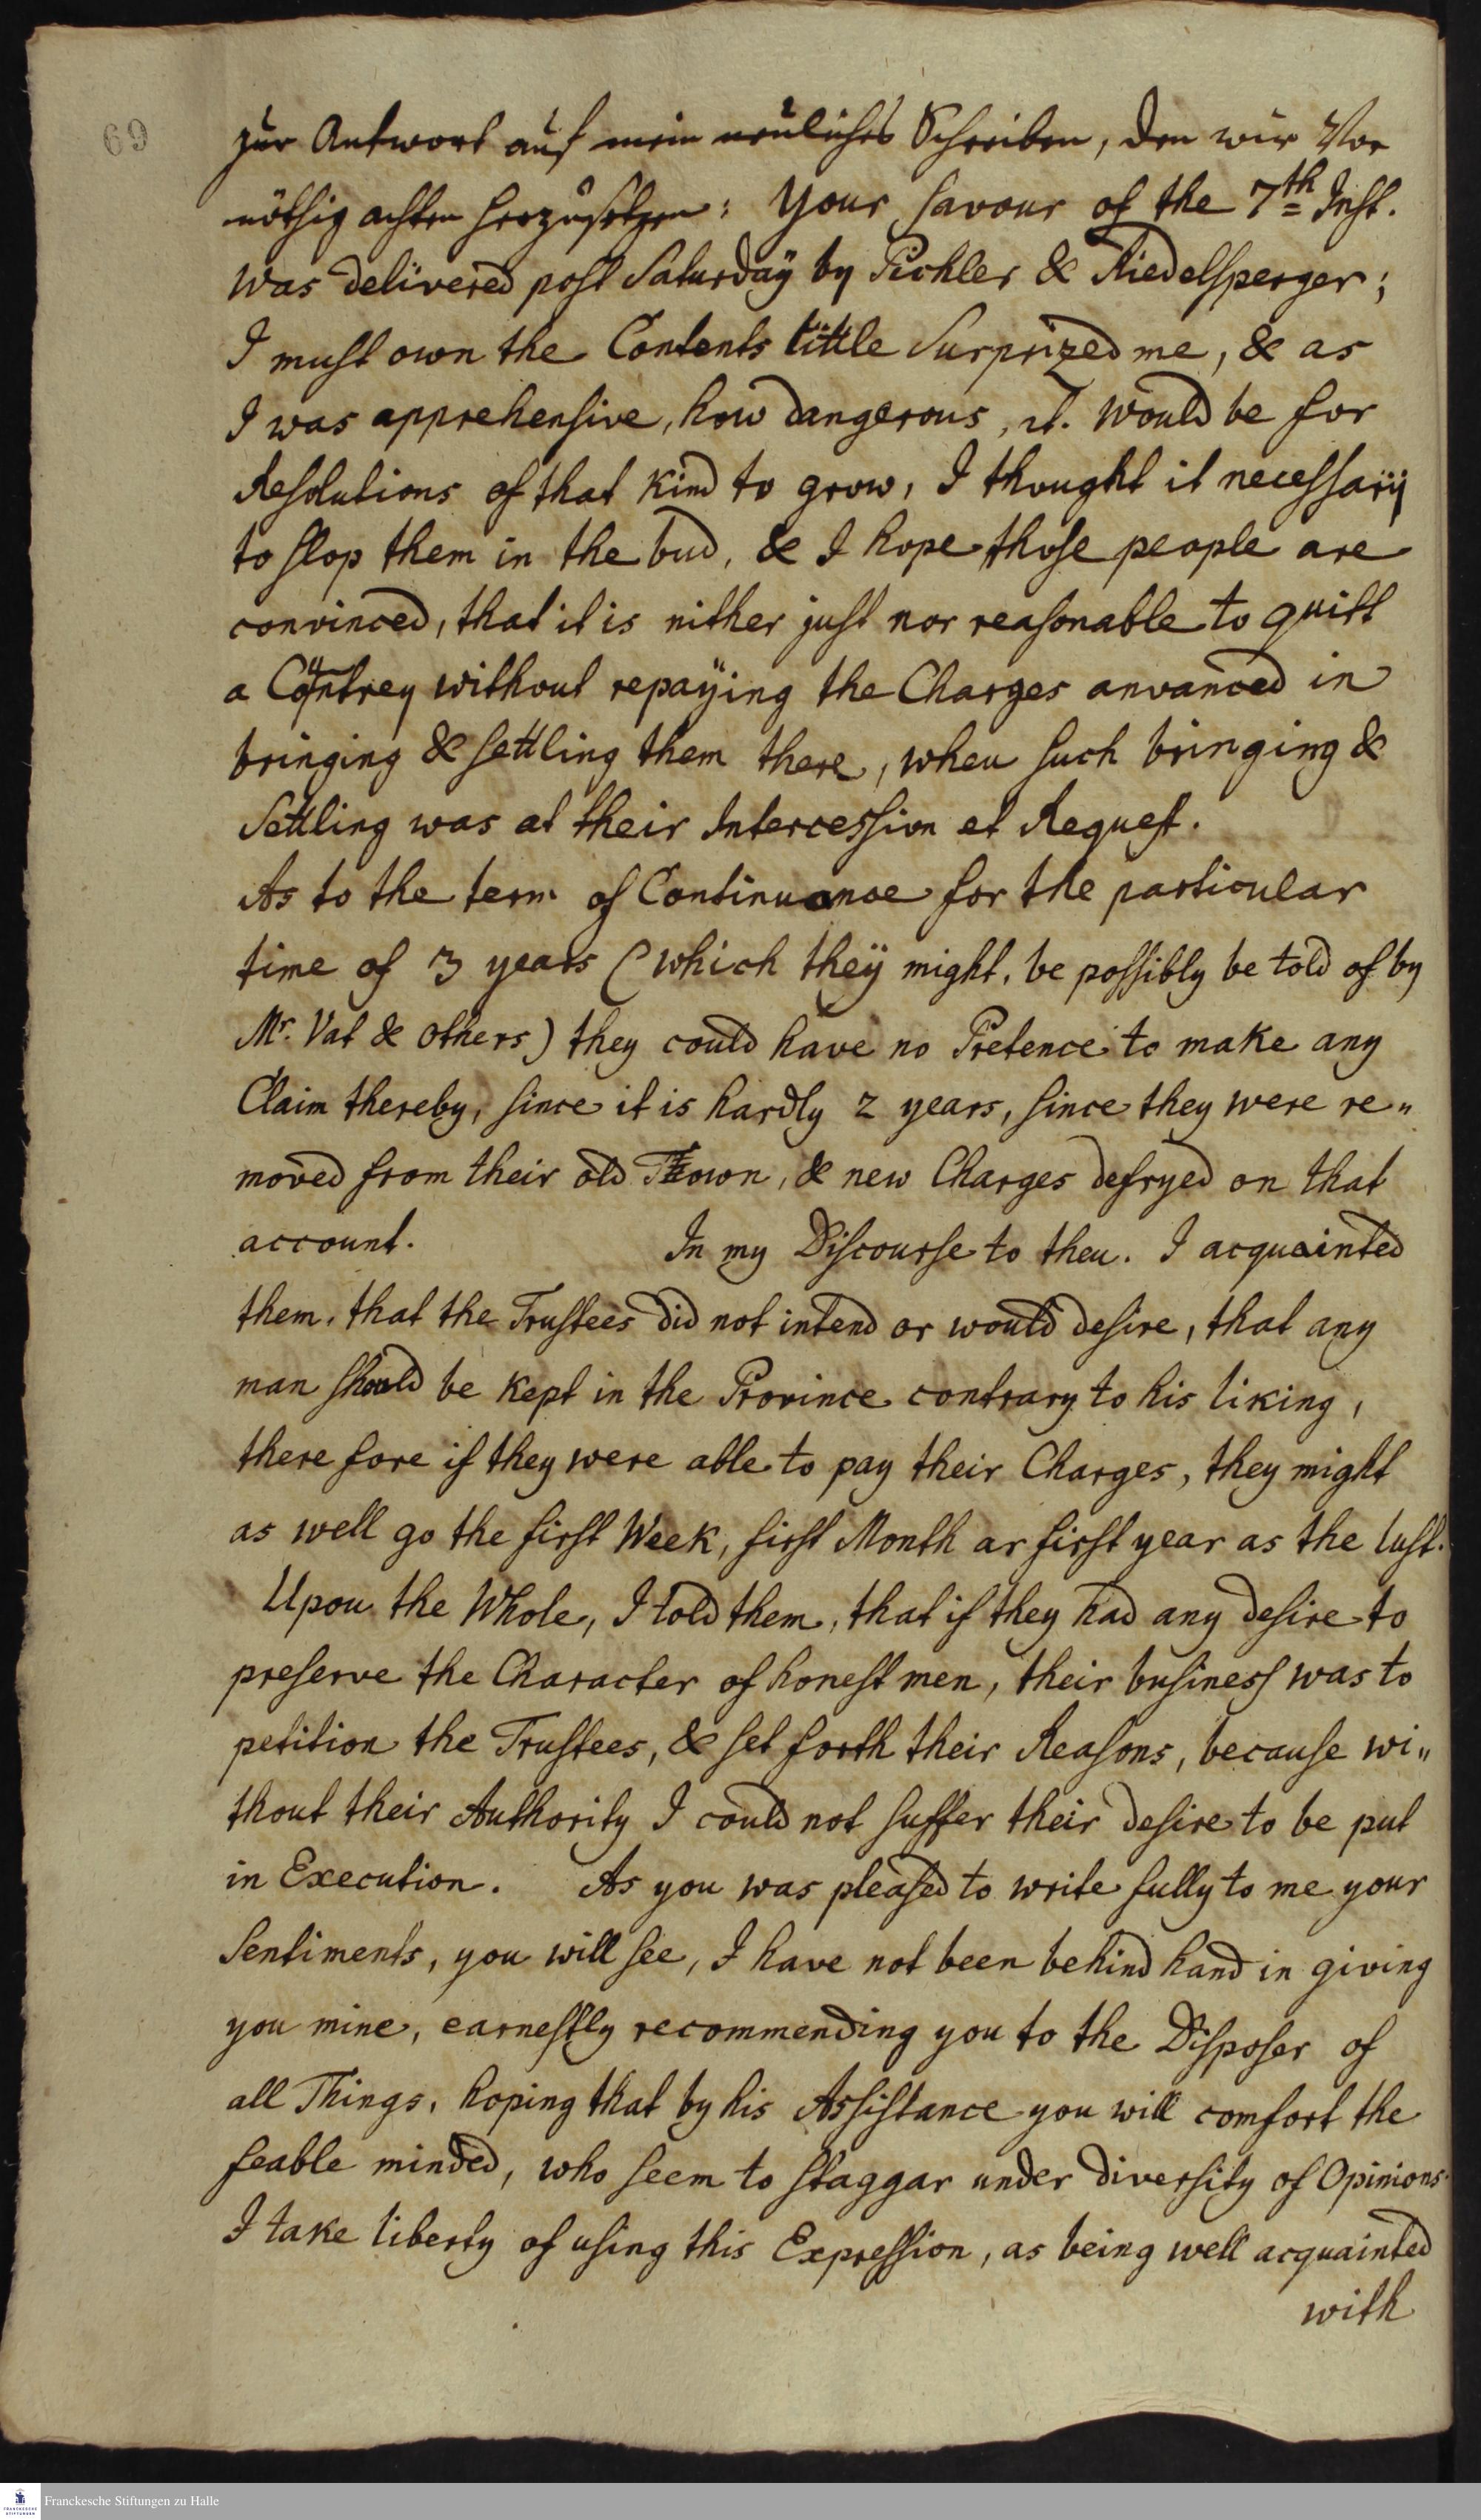 69
zur Antwort auf mein neuliches Schreiben, den wir vor
nöthig achten herzusetzen: Your favour of the 7th Inst.
was delivered post Saturday by Pichler & Riedelsperger;
I must own the Contents little Surprized me, & as
I was apprehensive, how dangerous, it. would be for
Resolutions of that kind to grow, I thought it necessary
to stop them in the bud, & I hope those people are
convinced, that it is nither just nor reasonable to quitt
a Countrey without repaying the Charges anvanced in
bringing & settling them there, when such bringing &
Settling was at their Intercession et Request.
As to the term of Continuance for the particular
time of 3 years (which they might, be possibly be told of by
Mr. Vat & others) they could have no Pretence to make any
Claim thereby, since it is hardly 2 years, since they were re„
moved from their old Town, & new Charges defryed on that
account. In my Discourse to then. I acquainted
them, that the Trustees did not intend or would desire, that any
man should be kept in the Province contrary to his liking,
there fore if they were able to pay their Charges, they might
as well go the first Week, first Month ar first year as the lust.
Upon the Whole, I told them, that if they had any desire to
preserve the Character of honest men, their business was to
petition the Trustees, & set forth their Reasons, because wi„
thout their Authority I could not suffer their desire to be put
in Execution. As you was pleased to write fully to me your
Sentiments, you will see, I have not been behind hand in giving
you mine, earnestly recommending you to the Disposer of
all Things, hoping that by his Assistance you will comfort the
feable minded, who seem to staggar under diversity of Opinions.
I take liberty of using this Expression, as being well acquainted
with
Franckesche Stiftungen zu Halle